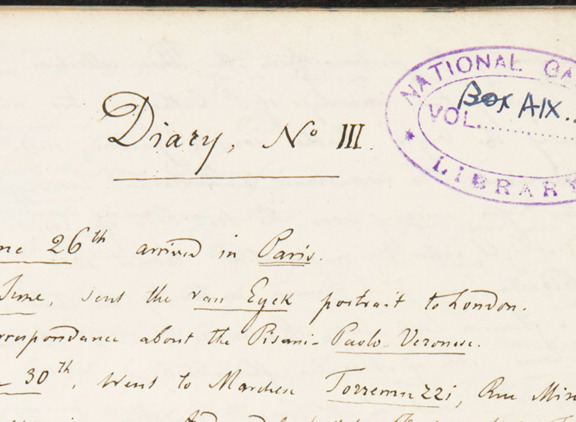 NATIONAL GA
Box AIX..
VOL.
LIBRARY
Diary, No III.
ne 26th arrived in Paris.
June, sent the van Eyck portrait to London.
rrespondance about the Pisani- Paolo Veronese.
30th, went to Marchese Torremuzzi, Rue Min